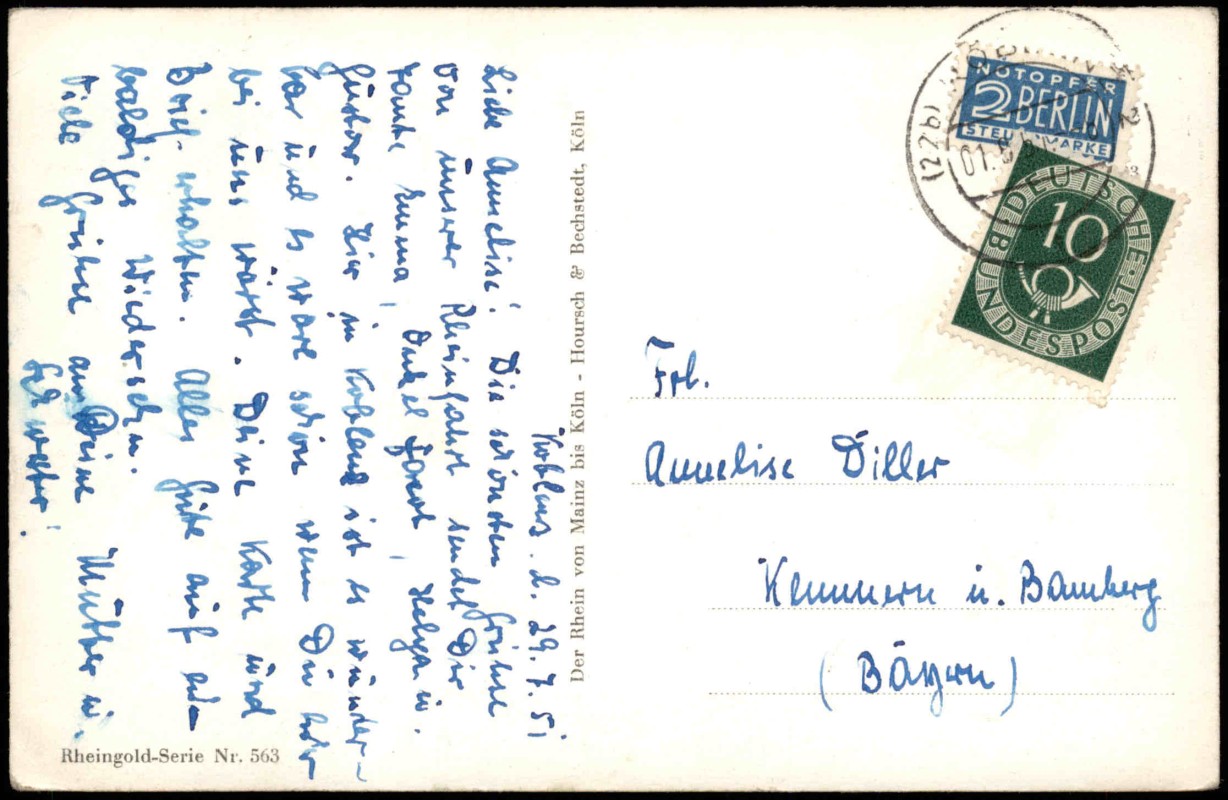 Koblenz d. 29. 7. 51
Liebe Annelise! Die schönsten Grüße
von unserer Rheinfahrt sendet Dir
Tante Emma, Onkel Ernst, Helga u.
Gustav. Hier in Koblenz ist es wunder-
bar und es wäre schön wenn Du hier
bei uns wärst. Deine Karte und
Brief erhalten. Alles Gute auf ein
baldiges Wiedersehn.
Viele Grüße an Deine Mutter u.
Schwester!
Rheingold-Serie Nr. 563
Der Rhein von Mainz bis Köln - Hoursch & Bechstedt, Köln
(22b)
2
01.8
NOTOPFER
2 BERLIN
STEUERMARKE
DEUTSCHE BUNDESPOST
10
Frl.
Annelise Diller
Kemmern u. Bamberg
(Bayern)